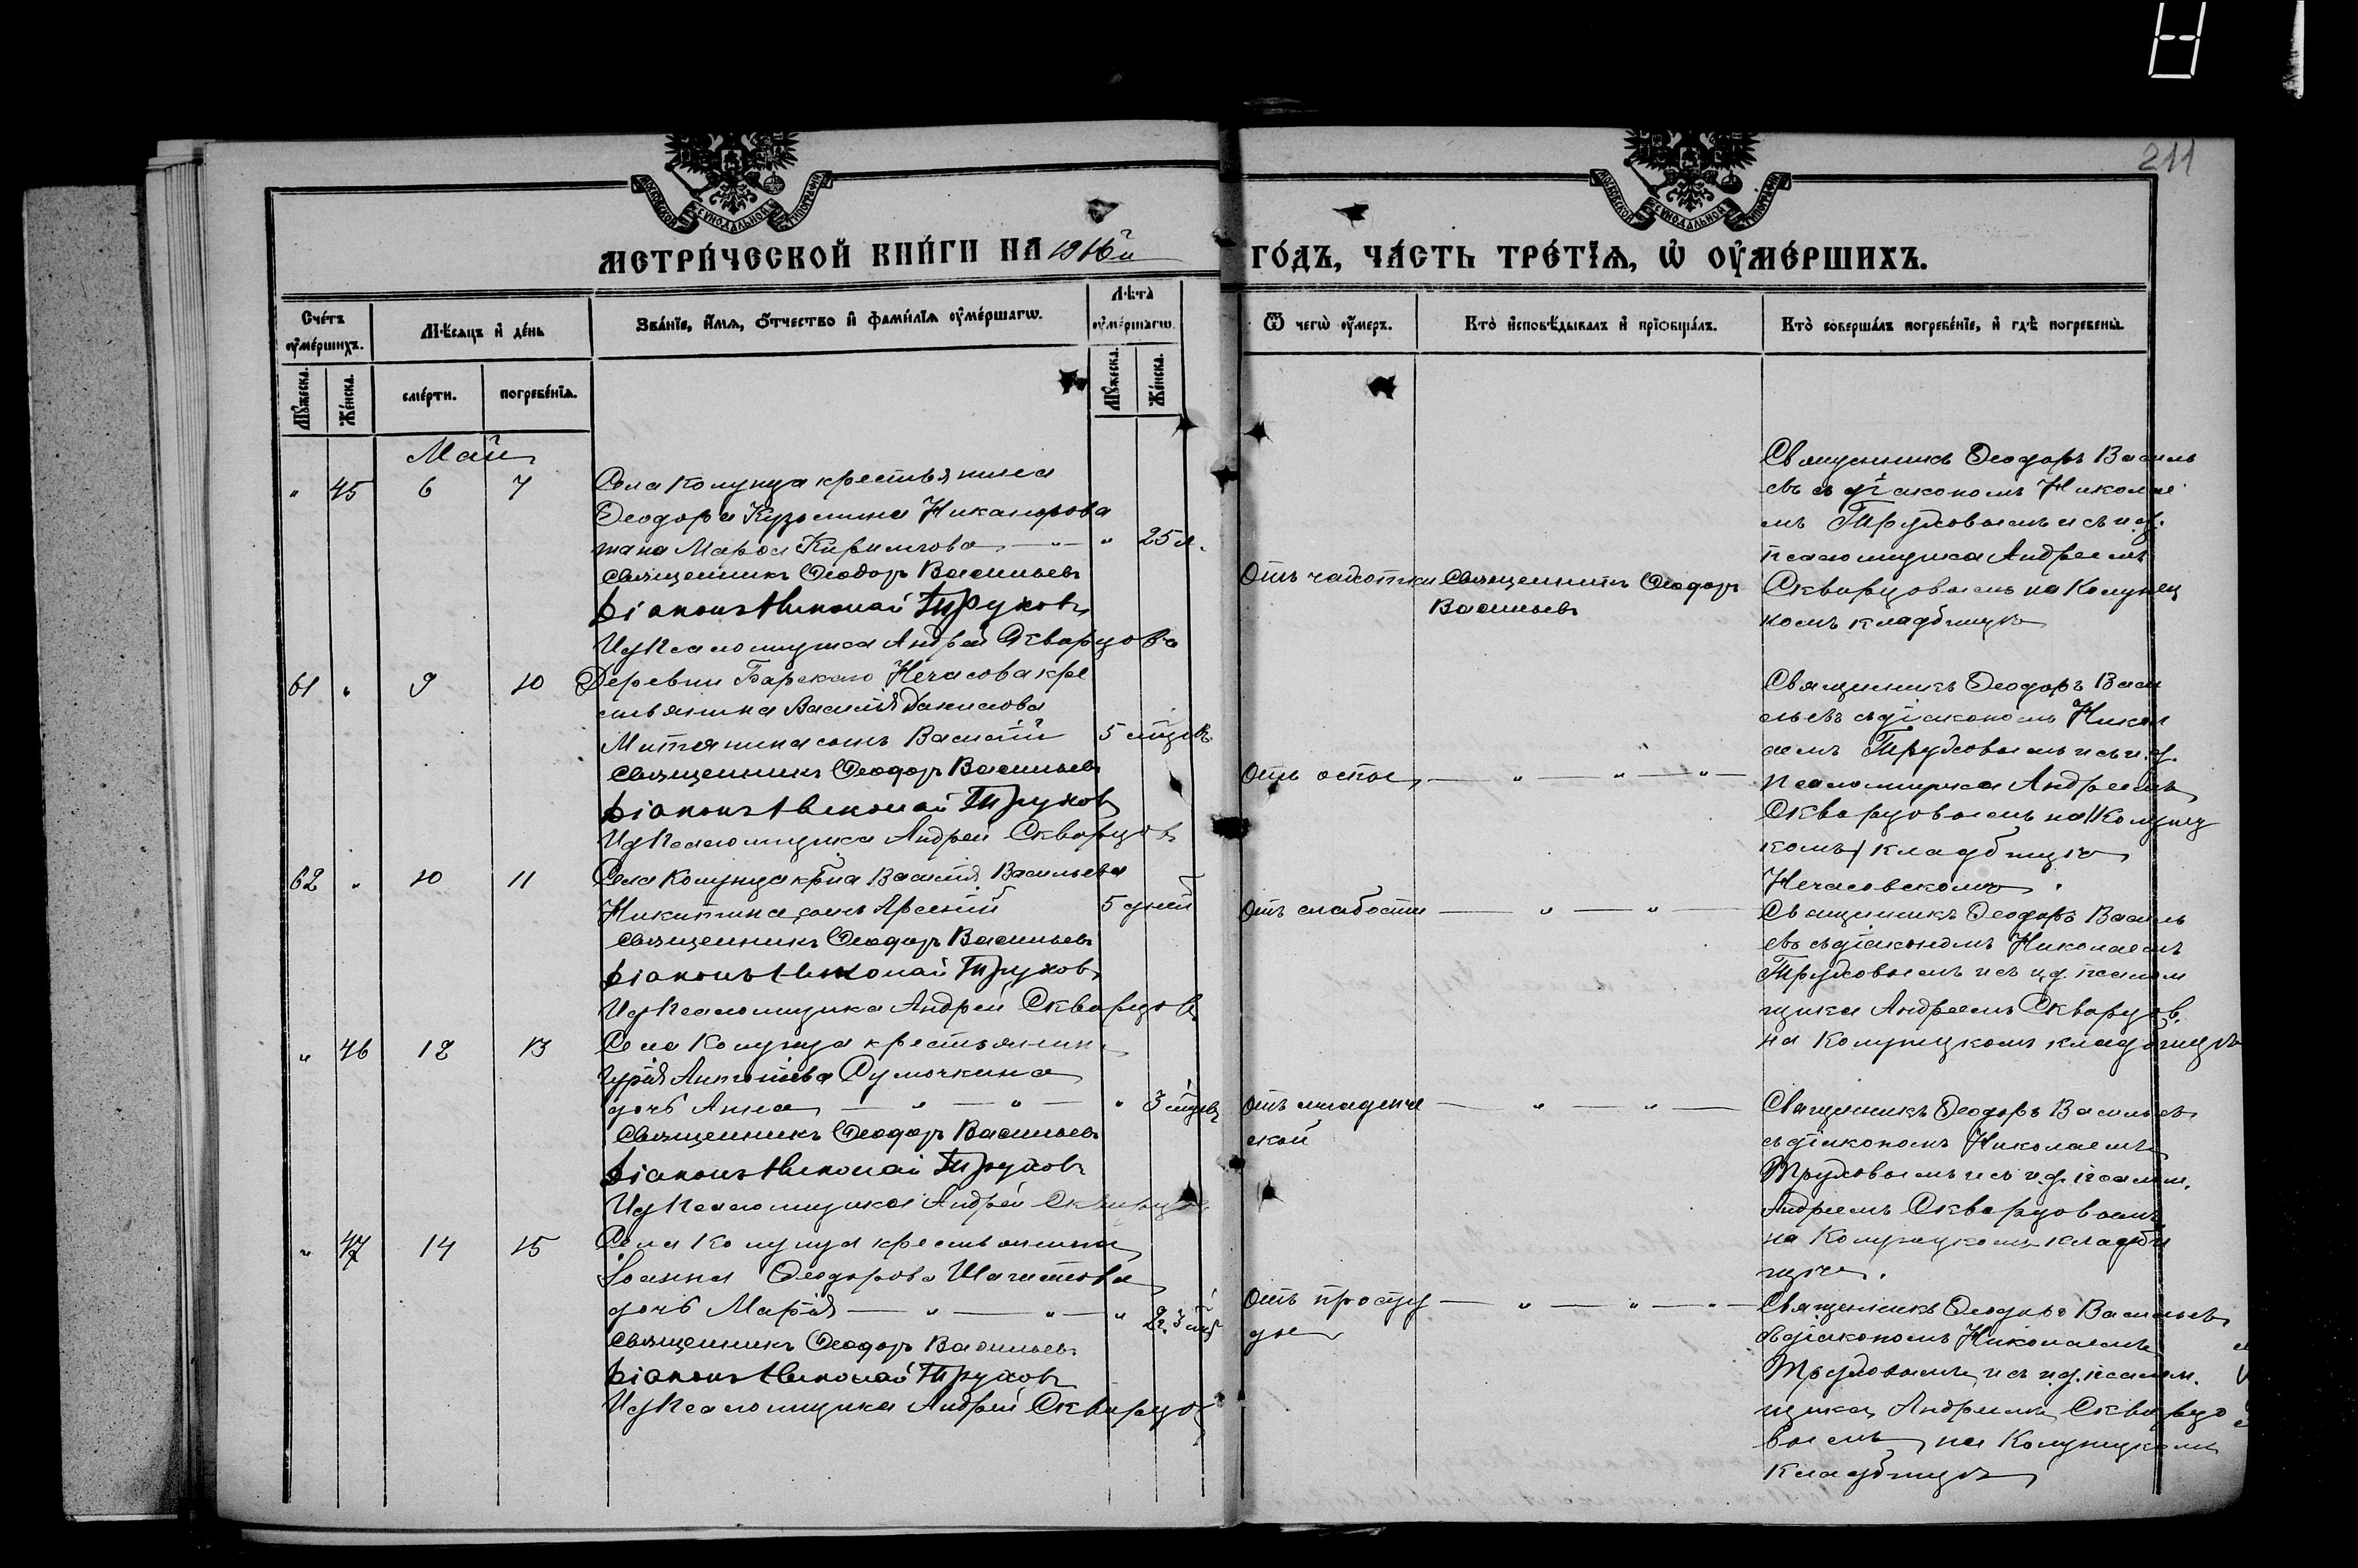 211
МОСКОВСКОЙ СѴНОДАЛЬНОЙ ТИПОГРАФІИ
МОСКОВСКОЙ СѴНОДАЛЬНОЙ ТИПОГРАФІИ
МЕТРИ́ЧЕСКОЙ КНИ́ГИ НА 1916й
ГО́ДЪ, ЧА́СТЬ ТРЕ́ТЇѦ, Ѡ҆ ОУ҆МЕ́РШИХЪ.
Сче́тъ оу҆ме́ршихъ.
Мѣ́сяцъ и҆ де́нь
Зва́нїе, и҆́мя, о҆́тчество и҆ фами́лїя оу҆ме́ршагѡ.
Лѣ́та оу҆ме́ршагѡ.
Ѿ чегѡ̀ оу҆́меръ.
Кто̀ и҆сповѣ́дывалъ и҆ прїѡбща́лъ.
Кто̀ соверша́лъ погребе́нїе, и҆ гдѣ̀ погребены̀.
Мꙋ́жеска.
Же́нска.
сме́рти.
погребе́нїя.
Мꙋ́жеска.
Же́нска.
Май
" 45 6 7 Села Колунца крестьянина
Ѳеодора Кузьмина Никанорова
жена Марѳа Кирилова — " — " 25 л.
Священникъ Ѳеодоръ Васильевъ
Діаконъ Николай Труховъ
Ид Псаломщика Андрей Скворцовъ
Отъ чахотки Священникъ Ѳеодоръ
Васильевъ
Священникъ Ѳеодоръ Василь
евъ съ діакономъ Николае
мъ Труховымъ и съ и.д.
псаломщика Андреемъ
Скворцовымъ на Колунец
комъ кладбищѣ
61 " 9 10 Деревни Барскаго Нечасова кре
стьянина Василія Данилова
Митянина сынъ Василій 5 мцевъ
Священникъ Ѳеодоръ Васильевъ
Діаконъ Николай Труховъ
Ид Псаломщика Андрей Скворцовъ
Отъ оспы — " — " — " —
Священникъ Ѳеодоръ Васи
льевъ съ діакономъ Никол
аемъ Труховымъ и съ и.д.
псаломщика Андреемъ
Скворцовымъ на (Колунец
комъ) кладбищѣ
Нечасовскомъ.
62 " 10 11 Села Колунца кр-на Василія Васильева
Никитина сынъ Арсеній 5 дней
Священникъ Ѳеодоръ Васильевъ
Діаконъ Николай Труховъ
Ид Псаломщика Андрей Скворцовъ
Отъ слабости — " — " —
Священникъ Ѳеодоръ Василь
евъ съ діакономъ Николаемъ
Труховымъ и съ и.д. псалом
щика Андреемъ Скворцов.
на Колунецкомъ кладбищѣ
" 46 12 13 Села Колунца крестьянина
Гурія Антоніева Сумочкина
дочь Анна — " — " — " 3 мцевъ
Священникъ Ѳеодоръ Васильевъ
Діаконъ Николай Труховъ
Ид Псаломщика Андрей Скворцовъ
Отъ младенче — " — " —
ской
Священникъ Ѳеодоръ Васильевъ
съ діакономъ Николаемъ
Труховымъ и съ и.д. псалом.
Андреемъ Скворцовымъ
на Колунецкомъ кладби
щѣ.
" 47 14 15 Села Колунца крестьянина
Іоанна Ѳеодорова
дочь Марія — " — " — " 2 г. 3
Священникъ Ѳеодоръ Васильевъ
Діаконъ Николай Труховъ
Ид Псаломщика Андрей Скворцовъ
Отъ просту — " — " — " —
ды
Священникъ Ѳеодоръ Васильевъ
съ діакономъ Николаемъ
Труховымъ и съ и.д. псалом.
щика Андреемъ Скворцо
вымъ на Колунецкомъ
кладбищѣ